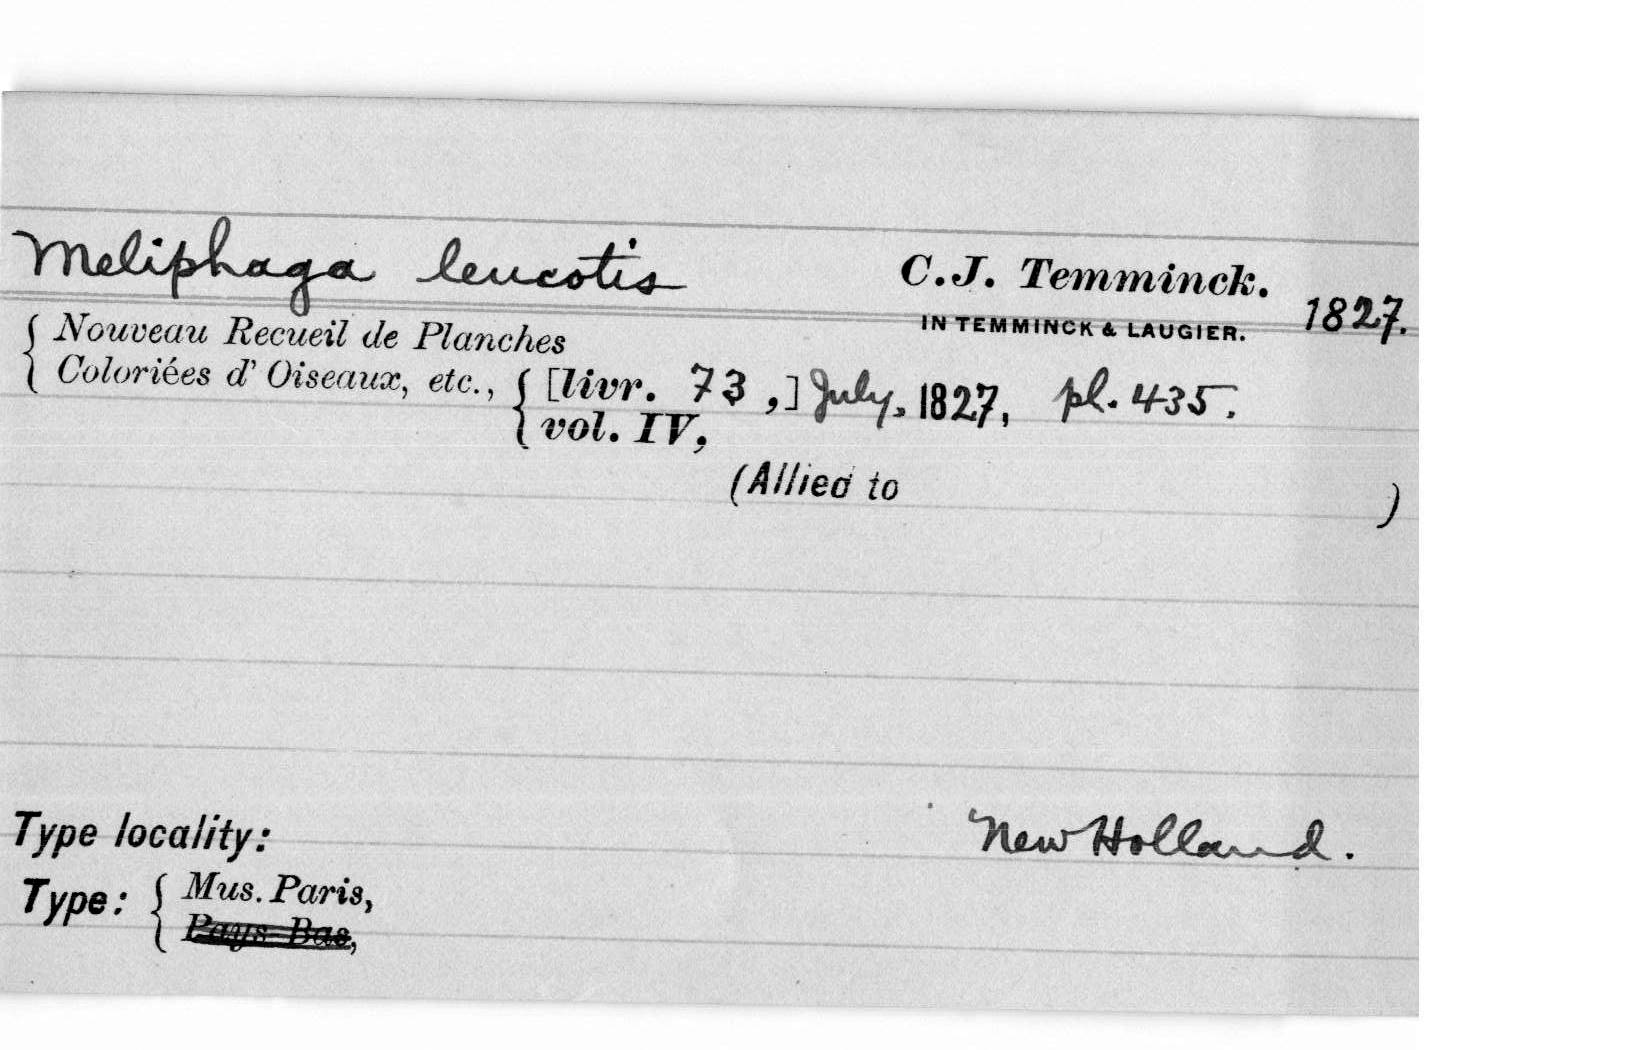 Meliphaga leucotis C.J. Temminck.
IN TEMMINCK & LAUGIER. 1827.
{ Nouveau Recueil de Planches
Coloriées d' Oiseaux, etc., { [livr. 73 ,] July, 1827, pl. 435.
vol. IV,
(Allied to )
Type locality: New Holland.
Type: { Mus. Paris,
Pays-Bas,